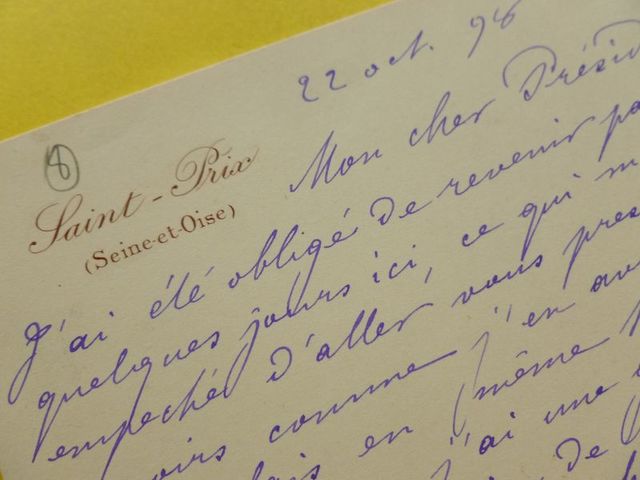 22 oct. 98
8
Saint-Prix
(Seine-et-Oise)
Mon cher
J'ai été obligé de revenir
quelques jours ici, ce qui
empeché d'aller vous
comme j'en
en même
j'ai une
de